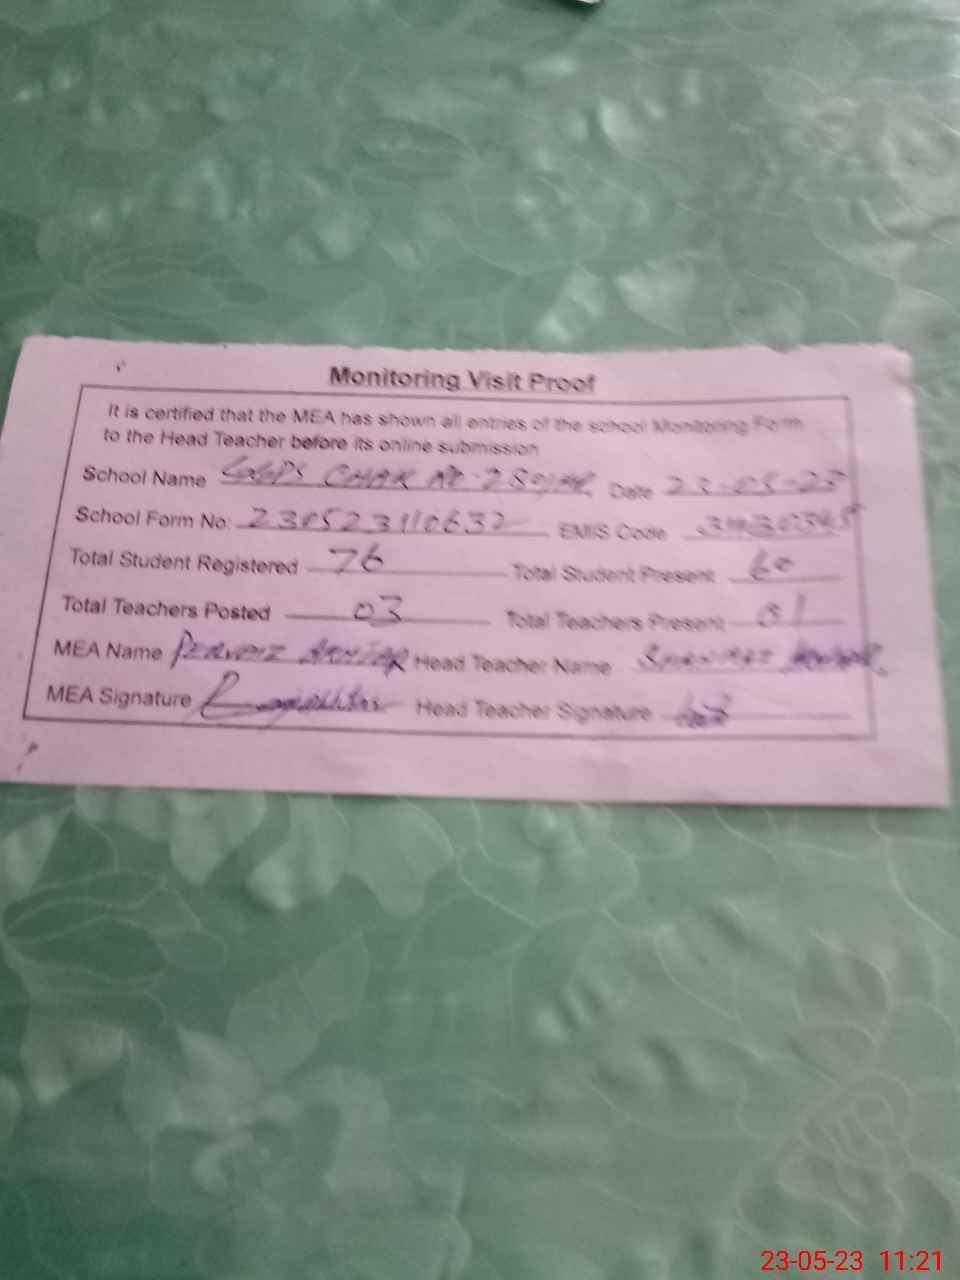 Monitoring Visit Proof
It is certified that the MEA has shown all entries of the school Monitoring Form
to the Head Teacher before its online submission
School Name CHAK No. Date 23-05-23
School Form No: 230523110632 EMIS Code
Total Student Registered 76 Total Student Present 60
Total Teachers Posted 03 Total Teachers Present 01
MEA Name PERVAIZ AKHTAR Head Teacher Name
MEA Signature Head Teacher Signature
23-05-23 11:21